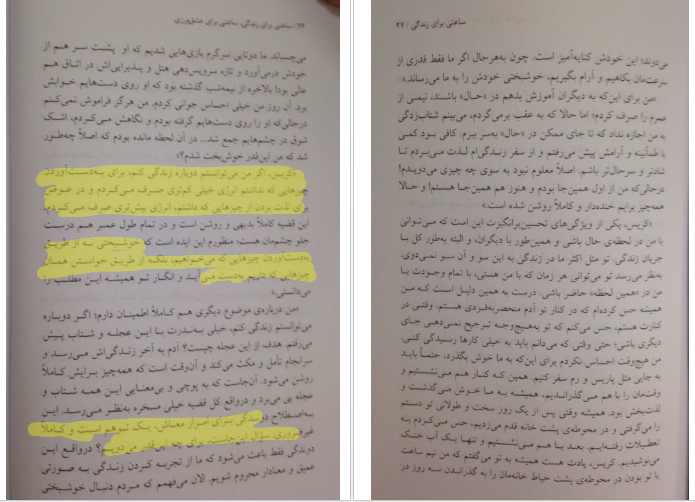 ۲۶ / ساعتی برای زندگی، ساعتی برای عشق‌ورزی
می‌چسباند. ما دوتایی سرگرم بازی‌هایی شدیم که او پشت سر هم از
خودش درمی‌آورد و تازه سرویس‌دهی هتل و پذیرایی‌اش در اتاق هم
عالی بود! بالاخره از نیمه‌شب گذشته بود که او روی دست‌هایم خوابش
برد. آن روز من خیلی احساس جوانی کردم. من هرگز فراموش نمی‌کنم
درحالی‌که او را روی دست‌هایم گرفته بودم و نگاهش می‌کردم، اشک
شوق در چشم‌هایم جمع شد... در آن لحظه مانده بودم که اصلاً چه‌طور
شد که من این‌قدر خوش‌بخت شدم؟»
«کریس، اگر من می‌توانستم دوباره زندگی کنم، برای به‌دست‌آوردن
چیزهایی که نداشتم انرژی خیلی کم‌تری صرف می‌کردم و در عوض
برای لذت بردن از چیزهایی که داشتم، انرژی بیش‌تری صرف می‌کردم.
این قضیه کاملاً بدیهی و روشن است و در تمام طول عمر هم درست
جلو چشم‌مان هست؛ منظورم این ایده است که خوشبختی نه از طریق
به‌دست‌آوردن چیزهایی که می‌خواهیم، بلکه از طریق خواستن همان
چیزهایی که داریم به‌دست می‌آید و انگار تو همیشه این مطلب را
می‌دانستی.»
«من درباره‌ی موضوع دیگری هم کاملاً اطمینان دارم؛ اگر دوباره
می‌توانستم زندگی کنم، خیلی به‌ندرت با این عجله و شتاب پیش
می‌رفتم. هدف از این عجله چیست؟ آدم به آخر زندگی‌اش می‌رسد و
سرانجام تأمل و مکث می‌کند و آن‌وقت است که همه‌چیز برایش کاملاً
روشن می‌شود. آن‌جاست که به پوچی و بی‌معنایی این همه شتاب و
عجله پی می‌برد و درواقع کل قضیه خیلی مسخره به‌نظر می‌رسد. این
به‌اصطلاح دوندگی برای امرار معاش، یک توهم است و کاملاً
غیرضروری. سؤال این‌جاست، برای چه این‌قدر می‌دویم؟ درواقع این
دوندگی فقط باعث می‌شود که ما از تجربه کردن زندگی به صورتی
عمیق و معنادار محروم شویم. الان می‌فهمم که مردم دنبال خوشبختی
ساعتی برای زندگی / ۲۷
می‌دوند؛ این خودش کنایه‌آمیز است. چون به‌هرحال اگر ما فقط قدری از
سرعت‌مان بکاهیم و آرام بگیریم، خوشبختی خودش را به ما می‌رساند.»
«من برای این‌که به دیگران آموزش بدهم در «حال» باشند، نیمی از
عمرم را صرف کردم؛ اما حالا که به عقب برمی‌گردم، می‌بینم شتاب‌زدگی
به من اجازه نداد که تا جای ممکن در «حال» به‌سر ببرم. کافی بود کمی
با طمأنینه و آرامش پیش می‌رفتم و از سفر زندگی‌ام لذت می‌بردم تا
شادتر و سرحال‌تر باشم. اصلاً معلوم نبود به سوی چه چیزی می‌دویدم!
درحالی‌که من از اول همین‌جا بودم و هنوز هم همین‌جا هستم! و حالا
همه‌چیز برایم خنده‌دار و کاملاً روشن شده است.»
«کریس، یکی از ویژگی‌های تحسین‌برانگیزت این است که می‌توانی
با من در لحظه‌ی حال باشی و همین‌طور با دیگران، و البته به‌طور کل با
جریان زندگی. تو مثل اکثر ما در زندگی به این سو و آن سو نمی‌دوی.
به‌نظر می‌رسد تو می‌توانی هر زمان که با من هستی، با تمام وجودت با
من در «همین لحظه» حاضر باشی، درست به همین دلیل است که من
همیشه حس کرده‌ام که در کنار تو آدم منحصربه‌فردی هستم. وقتی در
کنارت هستم، حس می‌کنم که تو به‌هیچ‌وجه ترجیح نمی‌دهی جای
دیگری باشی؛ حتی وقتی که می‌دانم باید به خیلی کارها رسیدگی کنی.
من هیچ‌وقت احساس نکردم برای این‌که به ما خوش بگذرد، حتماً باید
به جایی مثل پاریس و رم سفر کنیم. همین که کنار هم می‌نشستیم و
وقت‌مان را با هم می‌گذراندیم، همیشه به ما خوش می‌گذشت و
لذت‌بخش بود. همیشه وقتی پس از یک روز سخت و طولانی تو دستم
را می‌گرفتی و در محوطه‌ی پشت خانه قدم می‌زدیم، حس می‌کردم به
تعطیلات رفته‌ایم. بعد با هم می‌نشستیم و تنها یک آب خنک
می‌نوشیدیم. کریس، یادت هست همیشه به تو می‌گفتم که من نیم ساعت
با تو بودن در محوطه‌ی پشت حیاط خانه‌مان را به گذراندن سه روز در